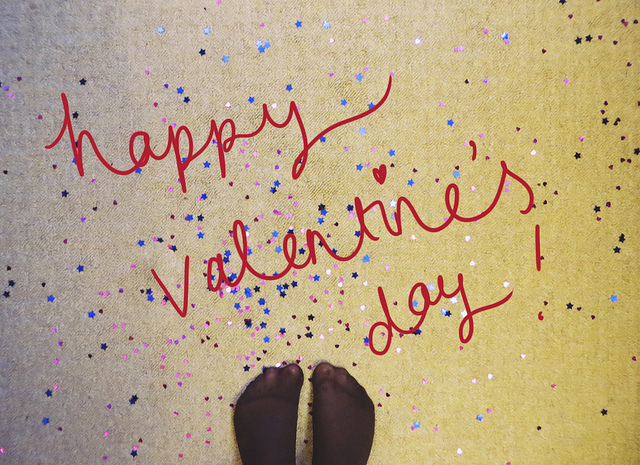 happy
valentine's
day!